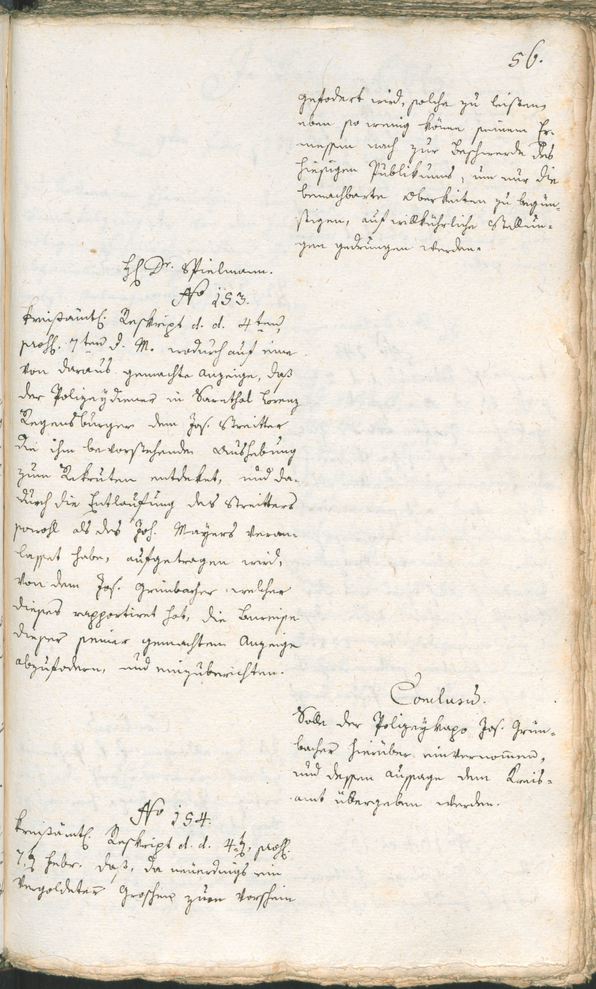 56.
gefodert wird, solche zu leisten,
eben so wenig könne seinem Er-
messen nach zur Beschwerde des
hiesigen Publikums, um nur die
benachbarte Oberkeiten zu begün-
stigen, auf willkührliche Stellun-
gen gedrungen werden.
H. Dr. Spielmann.
No 153.
Kreisämtl. Reskript d. d. 4ten
praes. 7ten d. M. wodurch auf eine
von daraus gemachte Anzeige, daß
der Polizeydiener in Sarnthal Lorenz
Regensburger dem Jos. Streitter
die ihm bevorstehende Aushebung
zum Rekruten entdeket, und da-
durch die Entlaufung des Streitters
sowohl als des Joh. Mayers veran
lasset habe, aufgetragen wird,
von dem Jos. Grünbacher welcher
dieses rapportiret hat, die Beweise
dieser seiner gemachten Anzeige
abzufodern, und einzuberichten.
Conclusum.
Solle der Polizeykapo Jos. Grün-
bacher hierüber einvernommen,
und dessen Aussage dem Kreis-
amt übergeben werden.
No 154.
Kreisämtl. Reskript d. d. 4t, praes.
7t Febr. daß, da neuerdings ein
vergoldeter Groschen zum Vorschein